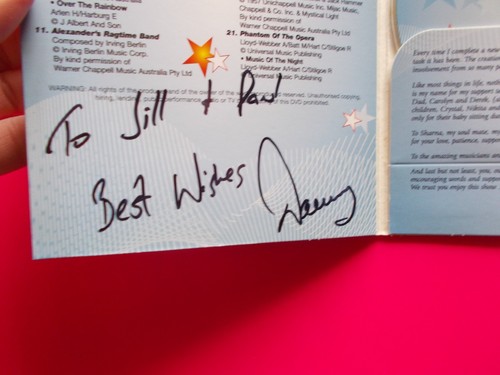 • Over The Rainbow
Arlen H/Harburg E
© J Albert And Son
11. Alexander's Ragtime Band
Composed by Irving Berlin
© Irving Berlin Music Corp.
By kind permission of
Warner Chappell Music Australia Pty Ltd
© 1957 Unichappell Music Inc. Mijac Music,
Chappell & Co. Inc. & Mystical Light
By kind permission of
Warner Chappell Music Australia Pty Ltd
21. Phantom Of The Opera
Lloyd-Webber A/Batt M/Hart C/Stilgoe R
© Universal Music Publishing
• Music Of The Night
Lloyd-Webber A/Hart C/Stilgoe R
Universal Music Publishing
WARNING: All rights of the produ and of the owner of the reserved. Unauthorised copying,
hiring, public performance or TV of this DVD prohibited.
To Jill + Paul
Best Wishes Danny
Every time I complete a new
task it has been. The creation
involvement from so many p
Like most things in life, most
is my name for my support
Dad, Carolyn and Derek,
children, Crystal, Nikita and
only for their baby sitting du
To Sharna, my soul mate, m
for your love, patience, suppor
To the amazing musicians an
And last but not least, you, m
encouraging words and suppo
We trust you enjoy this show